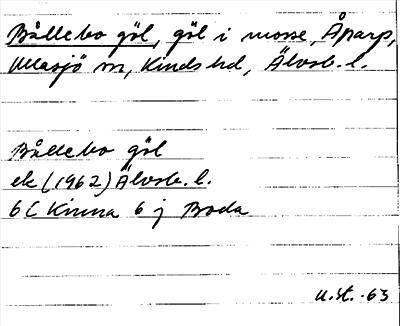 Bållebo göl, göl i mosse, Åparp,
Ullasjö sn, Kinds hd, Älvsb. l.
Bållebo göl
ek (1962) Älvsb. l.
6C Kinna 6 j Boda
U.st. -63